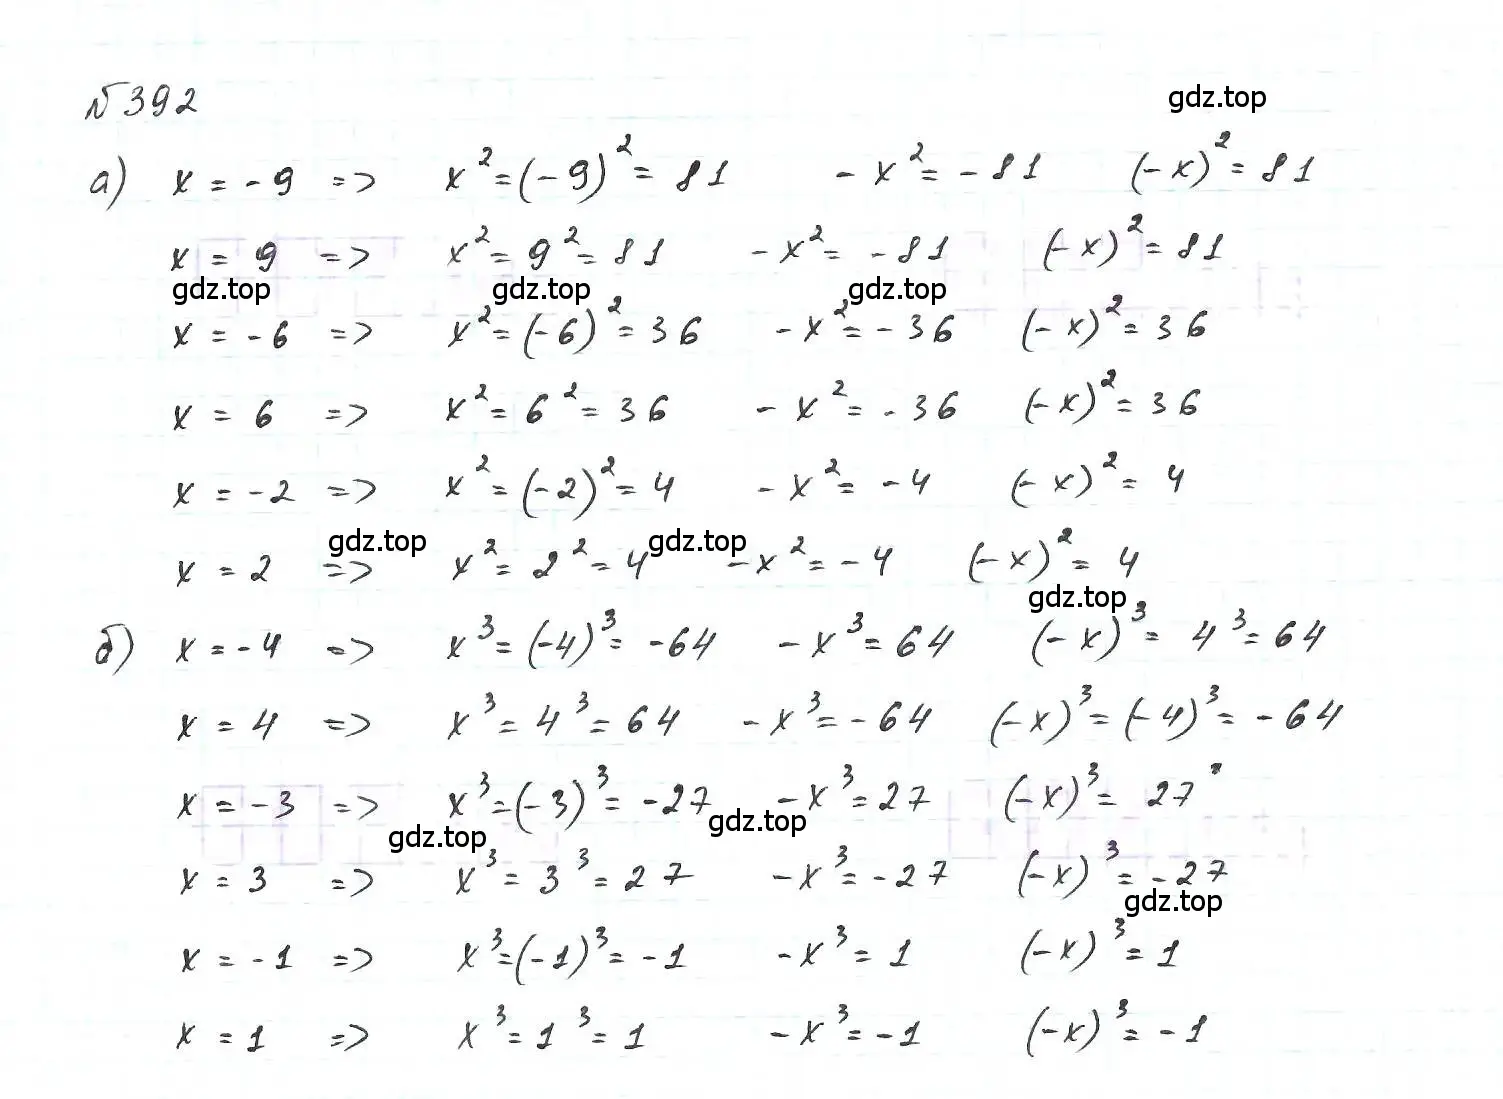 №392
gdz.top
а) x = -9 => x² = (-9)² = 81 -x² = -81 (-x)² = 81
x = 9 => x² = 9² = 81 -x² = -81 (-x)² = 81
gdz.top gdz.top gdz.top
x = -6 => x² = (-6)² = 36 -x² = -36 (-x)² = 36
x = 6 => x² = 6² = 36 -x² = -36 (-x)² = 36
x = -2 => x² = (-2)² = 4 -x² = -4 (-x)² = 4
gdz.top gdz.top
x = 2 => x² = 2² = 4 -x² = -4 (-x)² = 4
gdz.top
б) x = -4 => x³ = (-4)³ = -64 -x³ = 64 (-x)³ = 4³ = 64
x = 4 => x³ = 4³ = 64 -x³ = -64 (-x)³ = (-4)³ = -64
x = -3 => x³ = (-3)³ = -27 -x³ = 27 (-x)³ = 27
gdz.top gdz.top
x = 3 => x³ = 3³ = 27 -x³ = -27 (-x)³ = -27
gdz.top
x = -1 => x³ = (-1)³ = -1 -x³ = 1 (-x)³ = 1
x = 1 => x³ = 1³ = 1 -x³ = -1 (-x)³ = -1